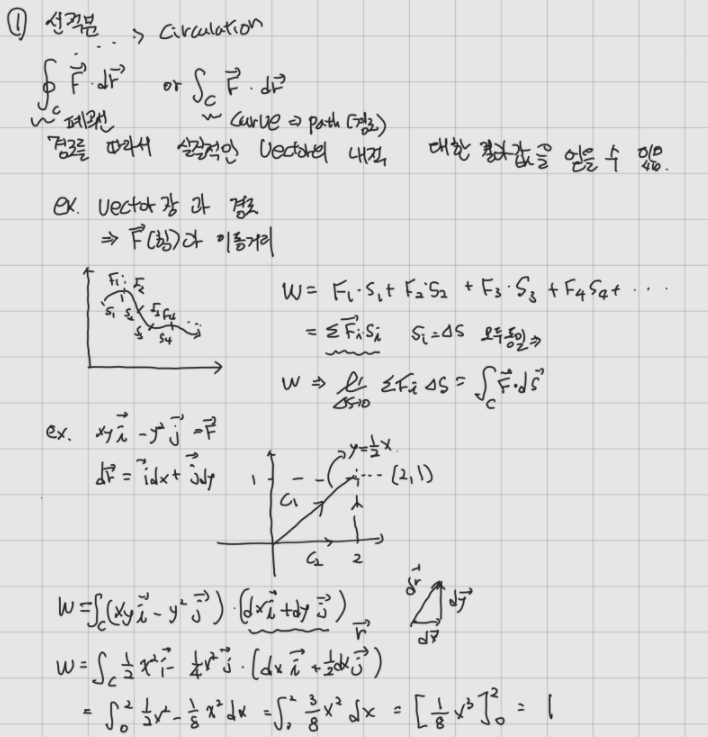 ① 선적분 → Circulation
∮_C F⃗·dr⃗ or ∫_C F⃗·dr⃗
폐곡선 curve ⇒ path (경로)
경로를 따라서 실질적인 Vector의 내적 대한 결과값을 얻을 수 있음.
ex. Vector장 과 경로
⇒ F⃗(힘)과 이동거리
F₁ F₂ F₃ F₄ ...
S₁ S₂ S₃ S₄
W = F₁·S₁ + F₂·S₂ + F₃·S₃ + F₄S₄ + ···
= ΣF⃗ᵢSᵢ Sᵢ=ΔS 모두동일⇒
W ⇒ lim_{ΔS→0} ΣFᵢ ΔS = ∫_C F⃗·dS⃗
ex. xy i⃗ - y² j⃗ = F⃗
dr⃗ = i⃗dx + j⃗dy
y=½x
1 (2,1)
C₁
C₂ 2
W = ∫_C (xy i⃗ - y² j⃗)·(dx i⃗ + dy j⃗) r⃗
dr⃗ dy⃗ dx⃗
W = ∫_C ½x² i⃗ - ¼x² j⃗·(dx i⃗ + ½dx j⃗)
= ∫₀² ½x² - ⅛x² dx = ∫₀² ⅜x² dx = [⅛x³]₀² = 1